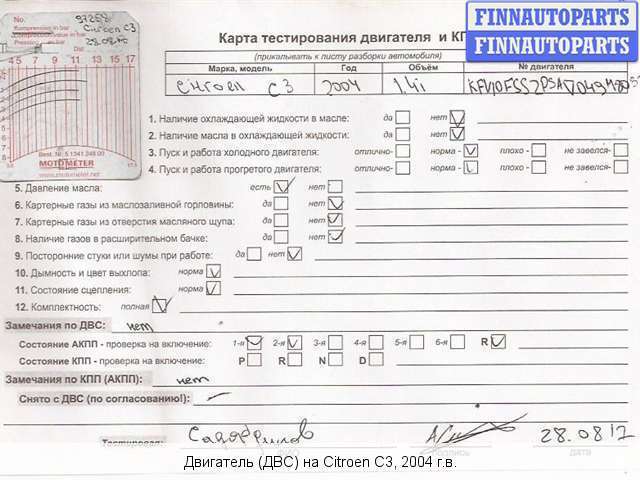 FINNAUTOPARTS
FINNAUTOPARTS
No. 97258
Citroen C3
Kompression in bar
Compression in bar
Pression en bar
Dat. 28.08.12
4 5 7 9 11 13 15 17
Best. Nr. 5 1341 248 00
MOTOMETER
www.motometer.net
Карта тестирования двигателя и КП
(прикалывать к листу разборки автомобиля)
Марка, модель Год Объём № двигателя
Citroen C3 2004 1.4i
1. Наличие охлаждающей жидкости в масле: да нет
2. Наличие масла в охлаждающей жидкости: да нет
3. Пуск и работа холодного двигателя: отлично- норма - плохо - не завелся-
4. Пуск и работа прогретого двигателя: отлично- норма - плохо - не завелся-
5. Давление масла: есть нет
6. Картерные газы из маслозаливной горловины: да нет
7. Картерные газы из отверстия масляного щупа: да нет
8. Наличие газов в расширительном бачке: да нет
9. Посторонние стуки или шумы при работе: да нет
10. Дымность и цвет выхлопа: норма
11. Состояние сцепления: норма
12. Комплектность: полная
Замечания по ДВС: нет
Состояние АКПП - проверка на включение: 1-я 2-я 3-я 4-я 5-я 6-я R
Состояние КПП - проверка на включение: P R N D
Замечания по КПП (АКПП): нет
Снято с ДВС (по согласованию!): –
Тестировал: 28.08.12
подпись дата
Двигатель (ДВС) на Citroen C3, 2004 г.в.